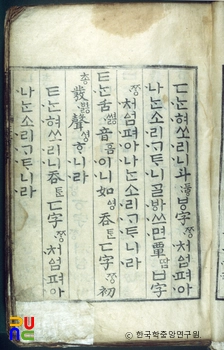 ㄷᄂᆞᆫ혀쏘리니斗두ᇢㅸ字ᄍᆞᆼ처ᅀᅥᆷ펴아
나ᄂᆞᆫ소리ᄀᆞᄐᆞ니ᄀᆞᆯᄫᅡ쓰면覃땀ㅂ字
ᄍᆞᆼ처ᅀᅥᆷ펴아나ᄂᆞᆫ소리ᄀᆞᄐᆞ니라
ㅌᄂᆞᆫ舌쎠ᇙ音흠이니如ᅀᅧᆼ呑ᄐᆞᆫㄷ字ᄍᆞᆼ初
총發버ᇙ聲셩ᄒᆞ니라
ㅌᄂᆞᆫ혀쏘리니呑ᄐᆞᆫㄷ字ᄍᆞᆼ처ᅀᅥᆷ펴아
나ᄂᆞᆫ소리ᄀᆞᄐᆞ니라
© 한국학중앙연구원